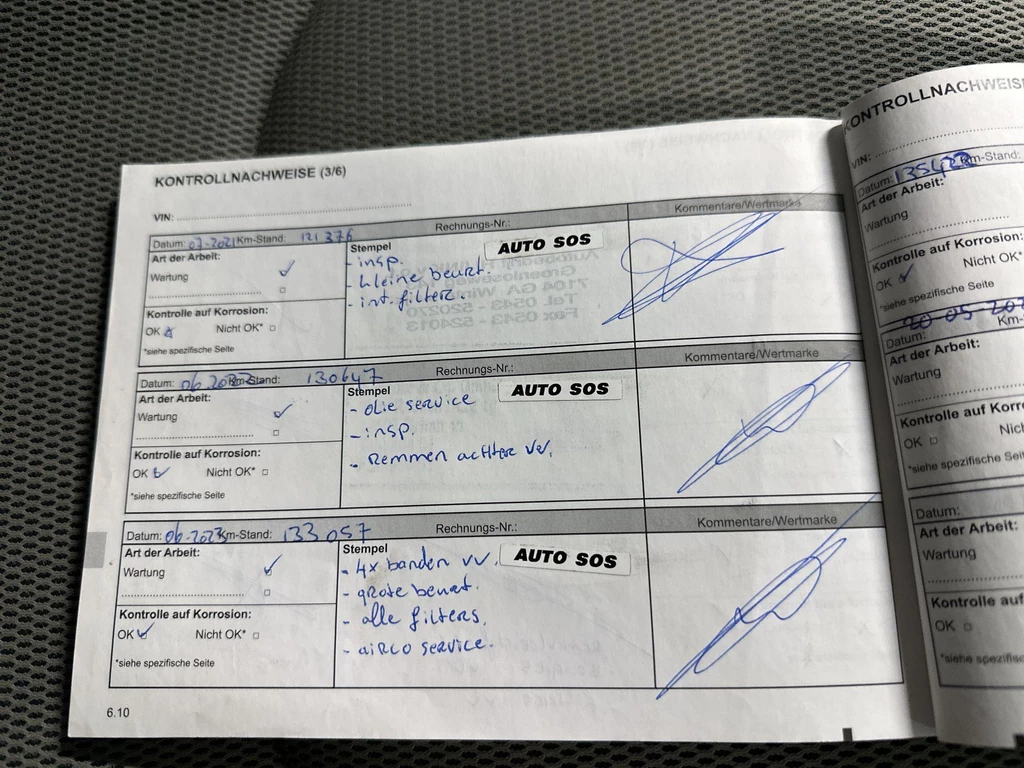 KONTROLLNACHWEISE (3/6)
VIN:
Rechnungs-Nr.: Kommentare/Wertmarke
Datum: 07-2021 Km-Stand: 121 376
Art der Arbeit:
Wartung
Kontrolle auf Korrosion:
OK Nicht OK*
*siehe spezifische Seite
Stempel AUTO SOS
- insp.
- kleine beurt.
- int. filter.
Groenloseweg
7104 GA
Tel. 0543 - 520220
Fax 0543 - 524013
Rechnungs-Nr.: Kommentare/Wertmarke
Datum: 06. Km-Stand: 130647
Art der Arbeit:
Wartung
Kontrolle auf Korrosion:
OK Nicht OK*
*siehe spezifische Seite
Stempel AUTO SOS
- olie service
- insp.
- Remmen achter vv.
Rechnungs-Nr.: Kommentare/Wertmarke
Datum: 06-2023 Km-Stand: 133 057
Art der Arbeit:
Wartung
Kontrolle auf Korrosion:
OK Nicht OK*
*siehe spezifische Seite
Stempel AUTO SOS
- 4x banden vv.
- grote beurt.
- alle filters.
- airco service.
6.10
KONTROLLNACHWEISE
VIN:
Datum: 135422 Km-Stand:
Art der Arbeit:
Wartung
Kontrolle auf Korrosion:
OK Nicht OK*
*siehe spezifische Seite
20-05-202
Datum: Km-
Art der Arbeit:
Wartung
Kontrolle auf Korro
OK Nich
*siehe spezifische Seit
Datum:
Art der Arbeit:
Wartung
Kontrolle auf
OK
*siehe spezifis